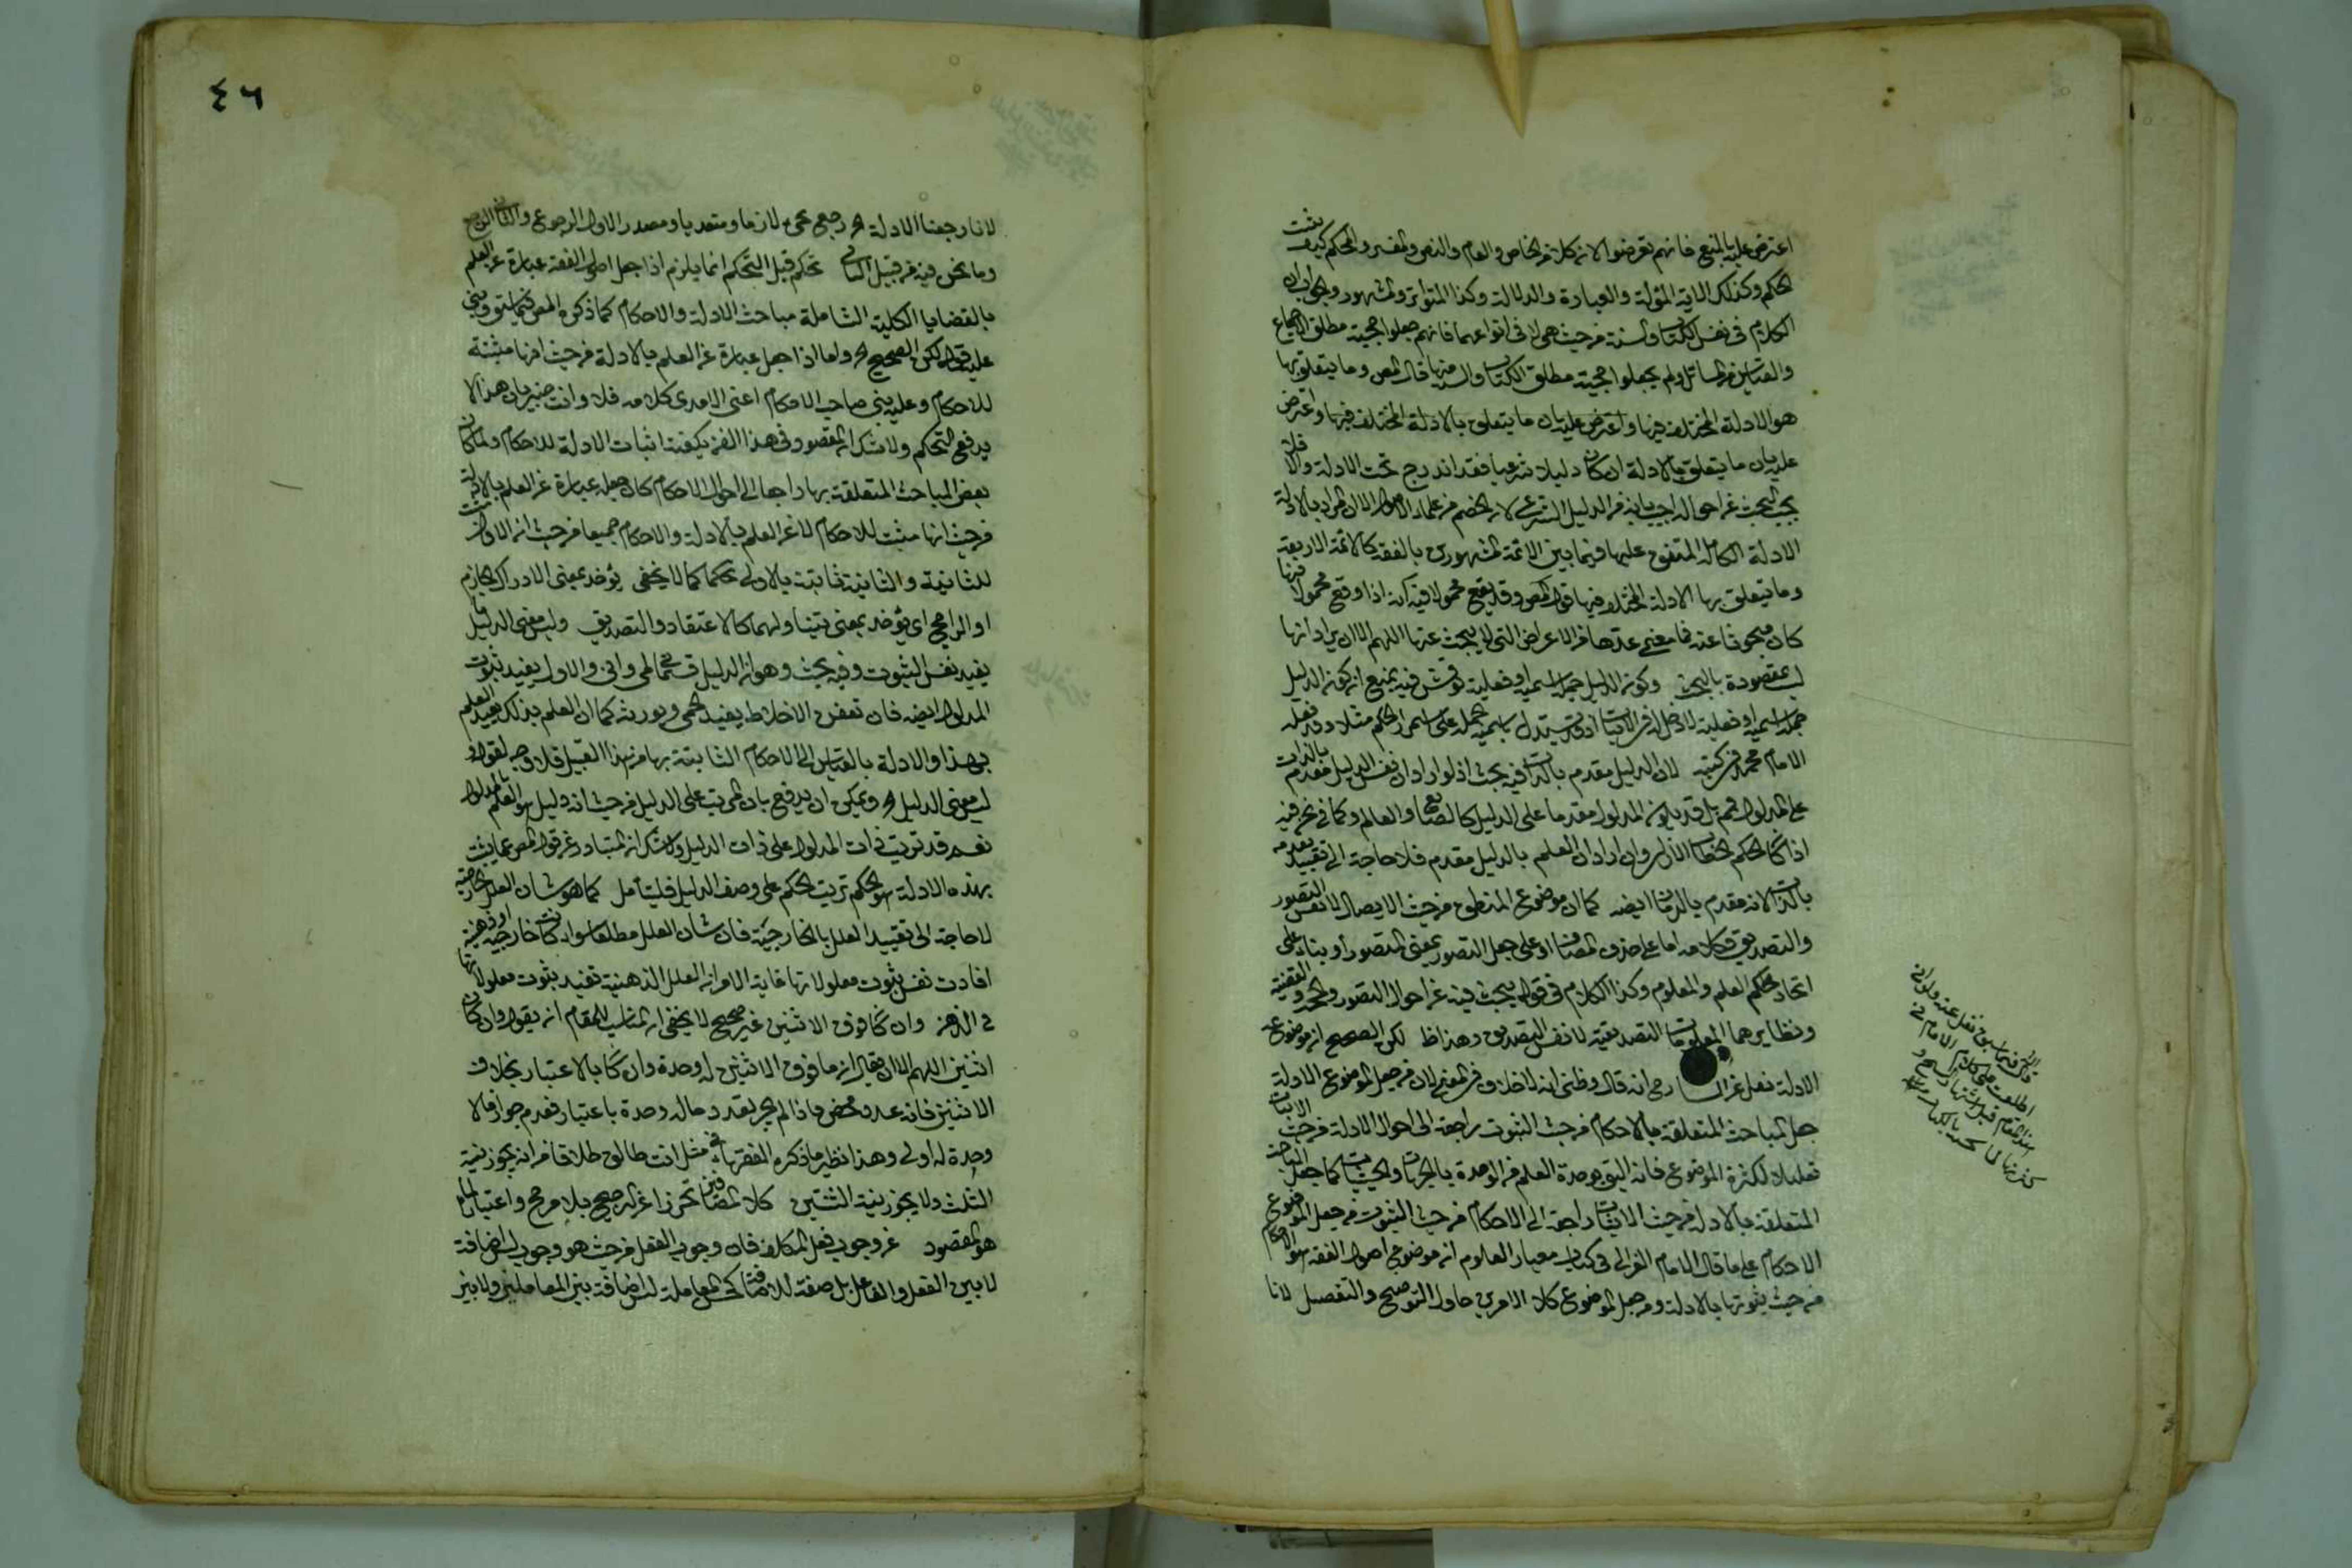 اعترض عليه بالمنع فانهم تعرضوا لان كلا من الخاص والعام والنص والمفسر والمحكم كيف يثبت
الحكم وكذلك الاية المؤلة والعبارة والدلالة وكذا المتواتر والمشهور والجواب ان
الكلام في نفس الكتاب والسنة من حيث هي لا في انواعهما فانهم جعلوا حجية مطلق الاجماع
والقياس من المسائل ولم يجعلوا حجية مطلق الكتاب والسنة منها قال المص وما يتعلق بها
هو الادلة المختلف فيها واعترض عليه بان ما يتعلق بالادلة المختلف فيها واعترض
عليه بان ما يتعلق بالادلة ان كان دليلا شرعيا فقد اندرج تحت الادلة والا فلا
يجب البحث عن احواله اجيب بانه من الدليل الشرعي لان الخصم من علماء الاصول الا ان المراد بالادلة
الادلة الكاملة المتفق عليها فيما بين الائمة المشهورين بالفقه كالائمة الاربعة
وما يتعلق بها الادلة المختلف فيها قول المص وقد يقع محمولا فيه ان اذا وقع محمولا فيها
كان مبحوثا عنه فما معنى عدها من الاعراض التي لا يبحث عنها اللهم الا ان يراد انها
ليست مقصودة بالبحث وكون الدليل جملة اسمية او فعلية نوقش فيه بمنع ان كون الدليل
جملة اسمية او فعلية لا دخل له في الاثبات اذ قد يستدل باسمية الجملة على استمرار الحكم مثلا وقد فعله
الامام محمد في كتبه لان الدليل مقدم بالذات فيه بحث اذ لو اراد ان نفس الدليل مقدم بالذات
على المدلول فمم بل قد يكون المدلول مقدما على الدليل كالصانع والعالم وكما في نحن فيه
اذا كان الحكم الخطاب الازلي وان اراد ان العلم بالدليل مقدم فلا حاجة الى تقييد تقدمه
بالذات لانه مقدم بالزمان ايضه كما ان موضوع المنطق من حيث الايصال لا نفس التصور
والتصديق فكلامه اما على حذف المضاف او على جعل التصور بمعنى المتصور او بناء على
اتحاد حكم العلم والمعلوم وكذا الكلام في قوله يبحث فيه عن احوال التصور والحد والقضية
ونظايرهما المعلومات التصديقية لا نفس التصديق وهذا ظ لكن الصحيح ان موضوعه
الادلة نقل عن رحمه انه قال وظني انه لا خلاف في المعنى لان من جعل الموضوع الادلة
جعل المباحث المتعلقة بالاحكام من حيث الثبوت راجعة الى احوال الادلة من حيث الاثبات
تقليلا لكثرة الموضوع فانه اليق بوحدة العلم من الوحدة بالجهات والحيثيات كما جعل المباحث
المتعلقة بالادلة من حيث الاثبات راجعة الى الاحكام من حيث الثبوت من جعل الموضوع
الاحكام على ما قال الامام الغزالي في كتاب معيار العلوم ان موضوع اصول الفقه هو الاحكام
من حيث ثبوتها بالادلة ومن جعل الموضوع كلا الامرين حاول التوضيح والتفصيل لانا
٤٦
لانا رجعنا الادلة الخ رجع يجيء لازما ومتعديا ومصدر الاول الرجوع والثاني الرجع
وما نحن فيه من قبيل الثاني تحكم قيل التحكم انما يلزم اذا جعل اصول الفقه عبارة عن العلم
بالقضايا الكلية الشاملة مباحث الادلة والاحكام كما ذكره المص فيما سبق وبنى
عليه قوله لكن الصحيح الخ واما اذا جعل عبارة عن العلم بالادلة من حيث انها مثبتة
للاحكام وعليه بنى صاحب الاحكام اعني الامدي كلامه فلا وانت خبير بان هذا لا
يدفع التحكم ولا شك ان المقصود في هذا الفن كيفية اثبات الادلة للاحكام ولما كان
بعض المباحث المتعلقة بها راجعا الى احوال الاحكام كان جعله عبارة عن العلم بالادلة
من حيث انها مثبتة للاحكام لا عن العلم بالادلة والاحكام جميعا من حيث ان الاولى مثبتة
للثانية والثانية ثابتة بالاولى تحكما كما لا يخفى يؤخذ بمعنى الادراك الجازم
او الراجح اي يؤخذ بمعنى يتناولهما كالاعتقاد والتصديق وليس معنى الدليل ما
يفيد نفس الثبوت وفيه بحث وهو ان الدليل قسمان لمي واني والاول يفيد ثبوت
المدلول ايضه فان تعفن الاخلاط يفيد الحمى ويورثه كما ان العلم بذلك يفيد العلم
بهذا والادلة بالقياس الى الاحكام الثابتة بها من هذا القبيل فلا وجه لقوله
ليس معنى الدليل الخ ويمكن ان يدفع بان المرتب على الدليل من حيث انه دليل هو العلم بالمدلول
نعم قد ترتب ذات المدلول على ذات الدليل ولا شك ان المتبادر عن قول المص عما يثبت
بهذه الادلة هو الحكم ترتب الحكم على وصف الدليل فليتأمل كما هو شان العلل الخارجية
لا حاجة الى تقييد العلل بالخارجية فان شان العلل مطلقا سواء كانت خارجية او ذهنية
افادت نفس ثبوت معلولاتها غاية الامر ان العلل الذهنية تفيد ثبوت معلولاتها
في الذهن وان كان فوق الاثنين غير صحيح لا يخفى ان المناسب للمقام ان يقول وان كان
اثنين اللهم الا ان يقال ان ما فوق الاثنين له وحدة وان كان بالاعتبار بخلاف
الاثنين فانه عدد محض فاذا لم يجز تعدد ماله وحدة باعتبار فعدم جواز مالا
وحدة له اولى وهذا نظير ما ذكره الفقهاء في مثل انت طالق طلاقا من انه يجوز نية
الثلث ولا يجوز نية الثنتين كلا المضافين تحرزا عن الترجيح بلا مرجح واعتبارا لما
هو المقصود عن وجوب فعل المكلف فان وجوب الفعل من حيث هو وجوب ليس اضافة
لا بين الفعل والفاعل بل صفة للمضاف كالمعاملة ليس اضافة بين المعاملين ولا بين